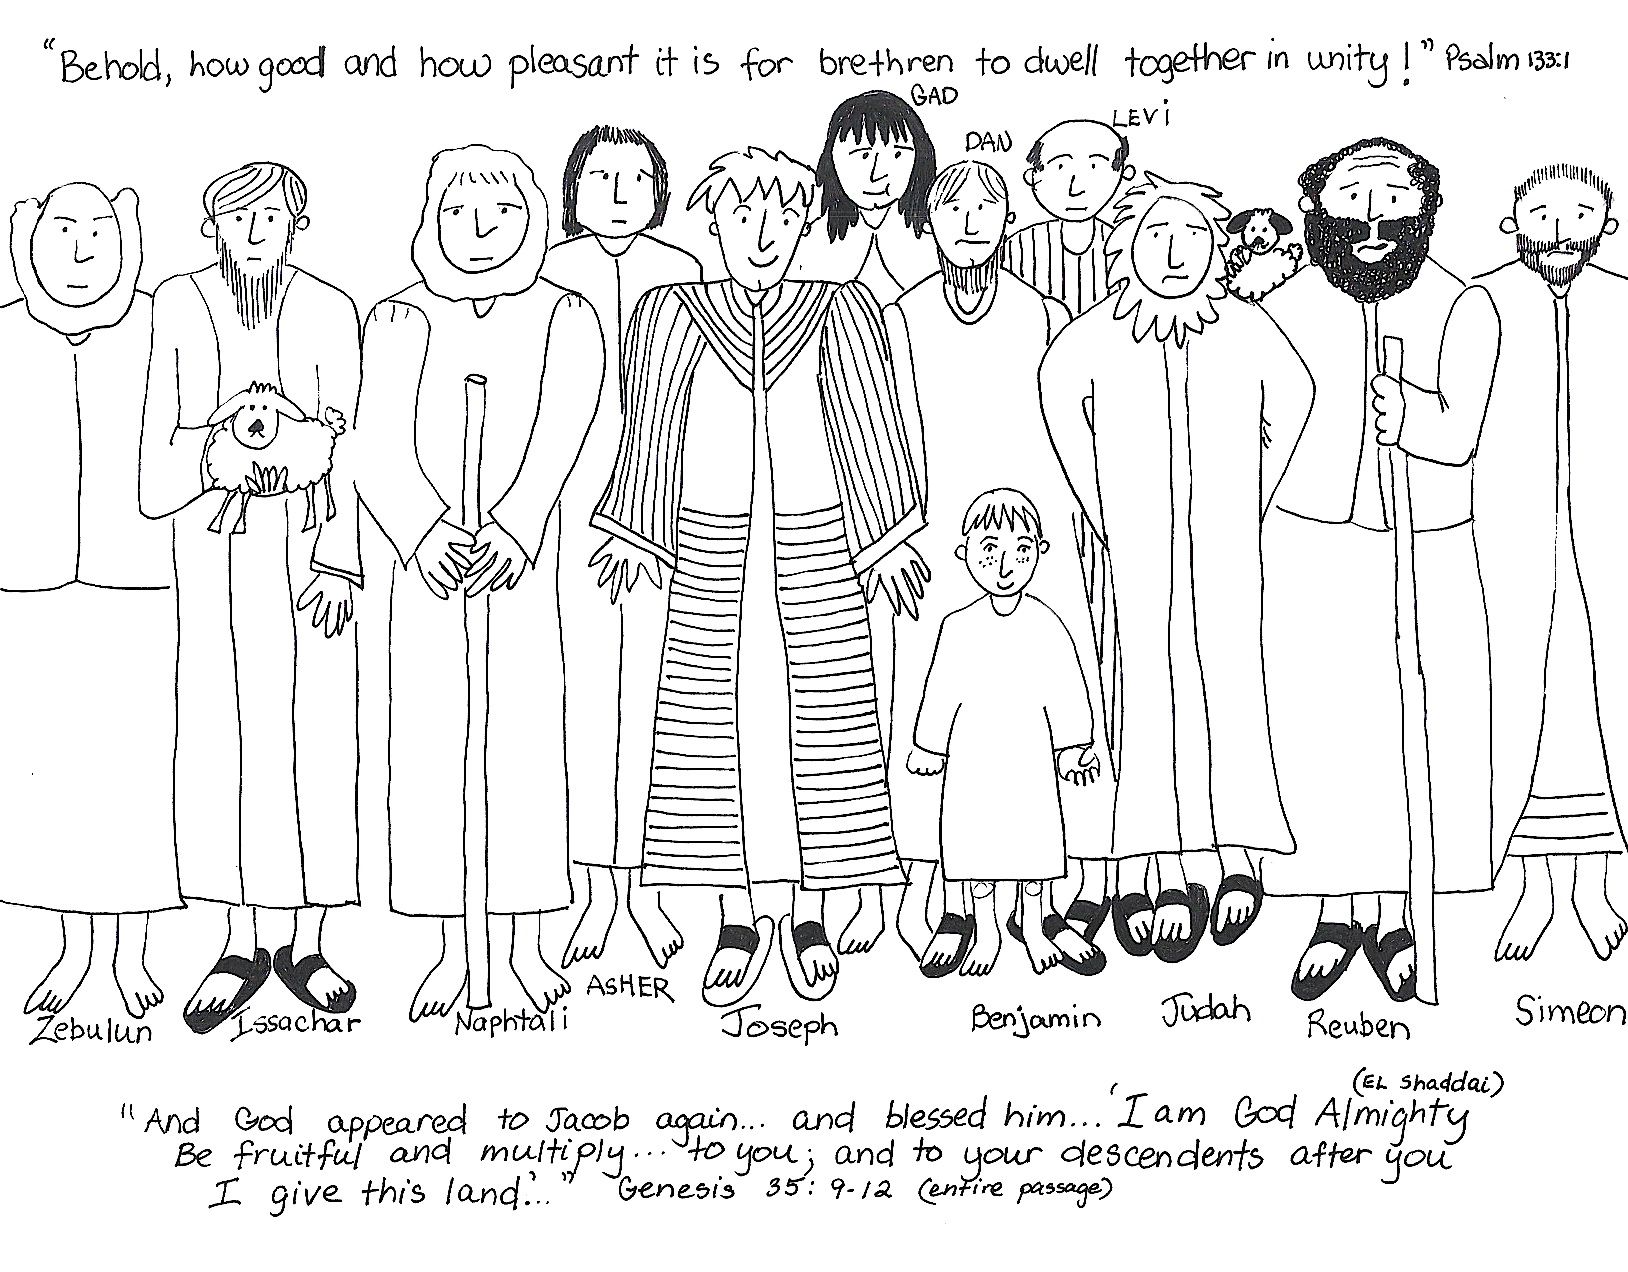 "Behold, how good and how pleasant it is for brethren to dwell together in unity!" Psalm 133:1
GAD
LEVi
DAN
ASHER
Zebulun Issachar Naphtali Joseph Benjamin Judah Reuben Simeon
(EL Shaddai)
"And God appeared to Jacob again... and blessed him... 'I am God Almighty
Be fruitful and multiply... to you; and to your descendents after you
I give this land.'..." Genesis 35: 9-12 (entire passage)